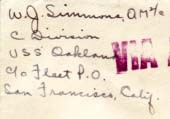 W. J. Simmons, AM 2/c
C Division
USS Oakland
c/o Fleet P.O.
San Francisco, Calif.
VIA